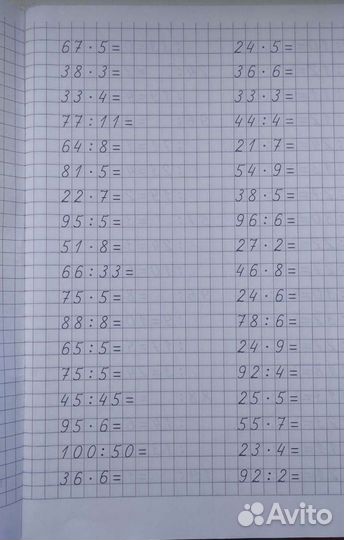 67·5=
38·3=
33·4=
77:11=
64:8=
81·5=
22·7=
95:5=
51·8=
66:33=
75·5=
88:8=
65:5=
75:5=
45:45=
95·6=
100:50=
36·6=
24·5=
36·6=
33·3=
44:4=
21·7=
54·9=
38·5=
96:6=
27·2=
46·8=
24·6=
78:6=
24·9=
92:4=
25·5=
55·7=
23·4=
92:2=
Avito